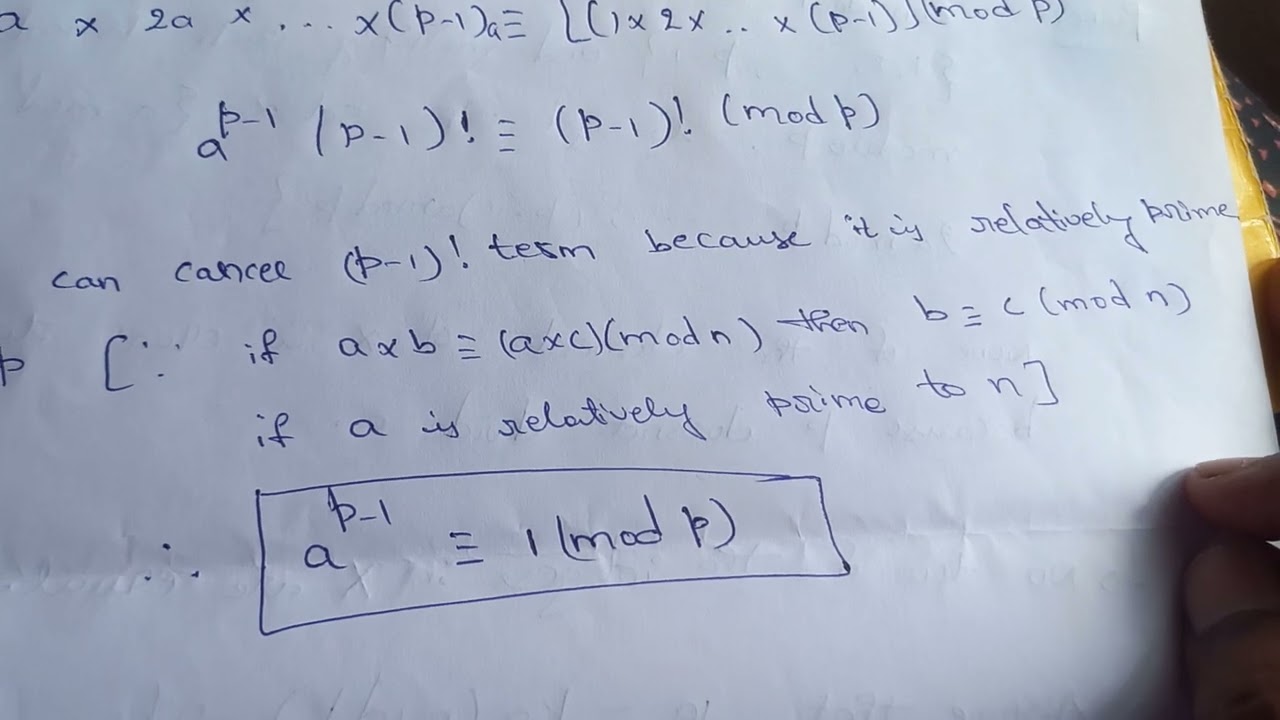 a x 2a x ... x (p-1)a ≡ [(1 x 2 x .. x (p-1)] (mod p)
a^{p-1} (p-1)! ≡ (p-1)! (mod p)
can cancel (p-1)! term because it is relatively prime
p [∵ if a x b ≡ (a x c)(mod n) then b ≡ c (mod n)
if a is relatively prime to n]
∴ a^{p-1} ≡ 1 (mod p)